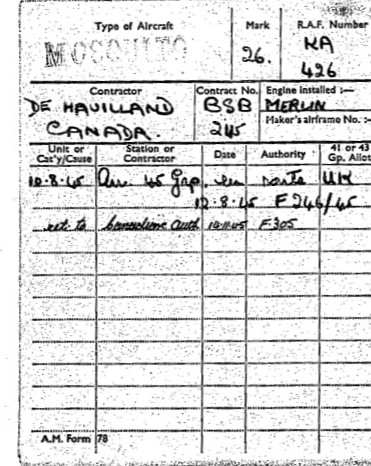 Type of Aircraft
Mark
R.A.F. Number
MOSQUITO
26.
KA
426
Contractor
Contract No.
Engine installed :—
DE HAVILLAND
CANADA.
BSB
245
MERLIN
Maker's airframe No. :—
Unit or
Cat'y/Cause
Station or
Contractor
Date
Authority
41 or 43
Gp. Allot
10.8.45 Arr 45 Grp. en route UK
12.8.45 F246/45
ret to Canadians auth 10.11.45 F305
A.M. Form 78